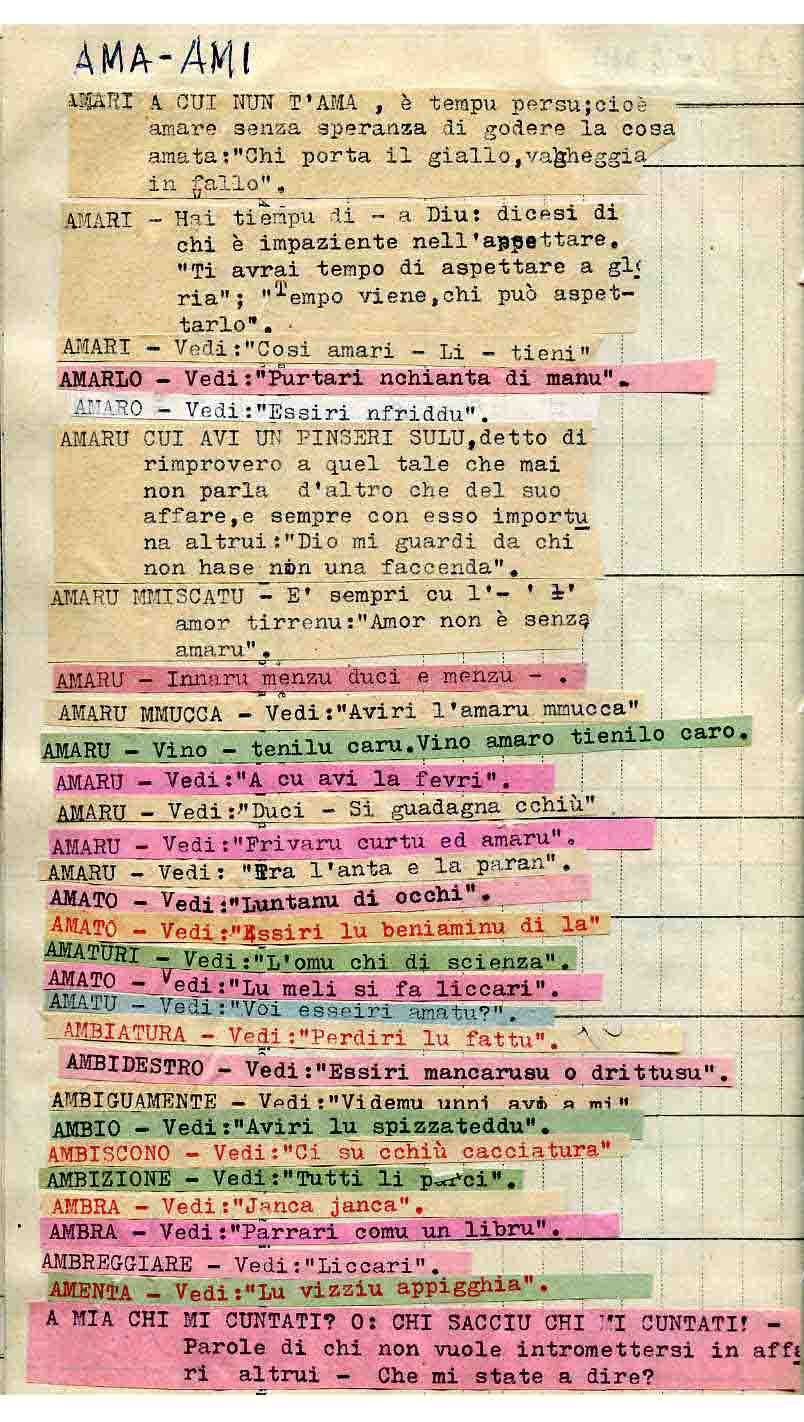 AMA-AMI
AMARI A CUI NUN T'AMA , è tempu persu;cioè
amare senza speranza di godere la cosa
amata:"Chi porta il giallo,vagheggia
in fallo".
AMARI - Hai tiempu di - a Diu: dicesi di
chi è impaziente nell'aspettare.
"Ti avrai tempo di aspettare a glo
ria"; "Tempo viene,chi può aspet-
tarlo".
AMARI - Vedi:"Cosi amari - Li - tieni"
AMARLO - Vedi:"Purtari nchianta di manu".
AMARO - Vedi:"Essiri nfriddu".
AMARU CUI AVI UN PINSERI SULU,detto di
rimprovero a quel tale che mai
non parla d'altro che del suo
affare,e sempre con esso importu
na altrui:"Dio mi guardi da chi
non hase non una faccenda".
AMARU MMISCATU - E' sempri cu l'- ' l'
amor tirrenu:"Amor non è senza
amaru".
AMARU - Innaru menzu duci e menzu - .
AMARU MMUCCA - Vedi:"Aviri l'amaru mmucca"
AMARU - Vino - tenilu caru.Vino amaro tienilo caro.
AMARU - Vedi:"A cu avi la fevri".
AMARU - Vedi:"Duci - Si guadagna cchiù"
AMARU - Vedi:"Frivaru curtu ed amaru".
AMARU - Vedi: "Tra l'anta e la paran".
AMATO - Vedi:"Luntanu di occhi".
AMATO - Vedi:"Essiri lu beniaminu di la"
AMATURI - Vedi:"L'omu chi di scienza".
AMATO - Vedi:"Lu meli si fa liccari".
AMATU - Vedi:"Voi esseiri amatu?".
AMBIATURA - Vedi:"Perdiri lu fattu".
AMBIDESTRO - Vedi:"Essiri mancarusu o drittusu".
AMBIGUAMENTE - Vedi:"Videmu unni avi a mi"
AMBIO - Vedi:"Aviri lu spizzateddu".
AMBISCONO - Vedi:"Ci su cchiù cacciatura"
AMBIZIONE - Vedi:"Tutti li porci".
AMBRA - Vedi:"Janca janca".
AMBRA - Vedi:"Parrari comu un libru".
AMBREGGIARE - Vedi:"Liccari".
AMENTA - Vedi:"Lu vizziu appigghia".
A MIA CHI MI CUNTATI? O: CHI SACCIU CHI MI CUNTATI! -
Parole di chi non vuole intromettersi in affa
ri altrui - Che mi state a dire?